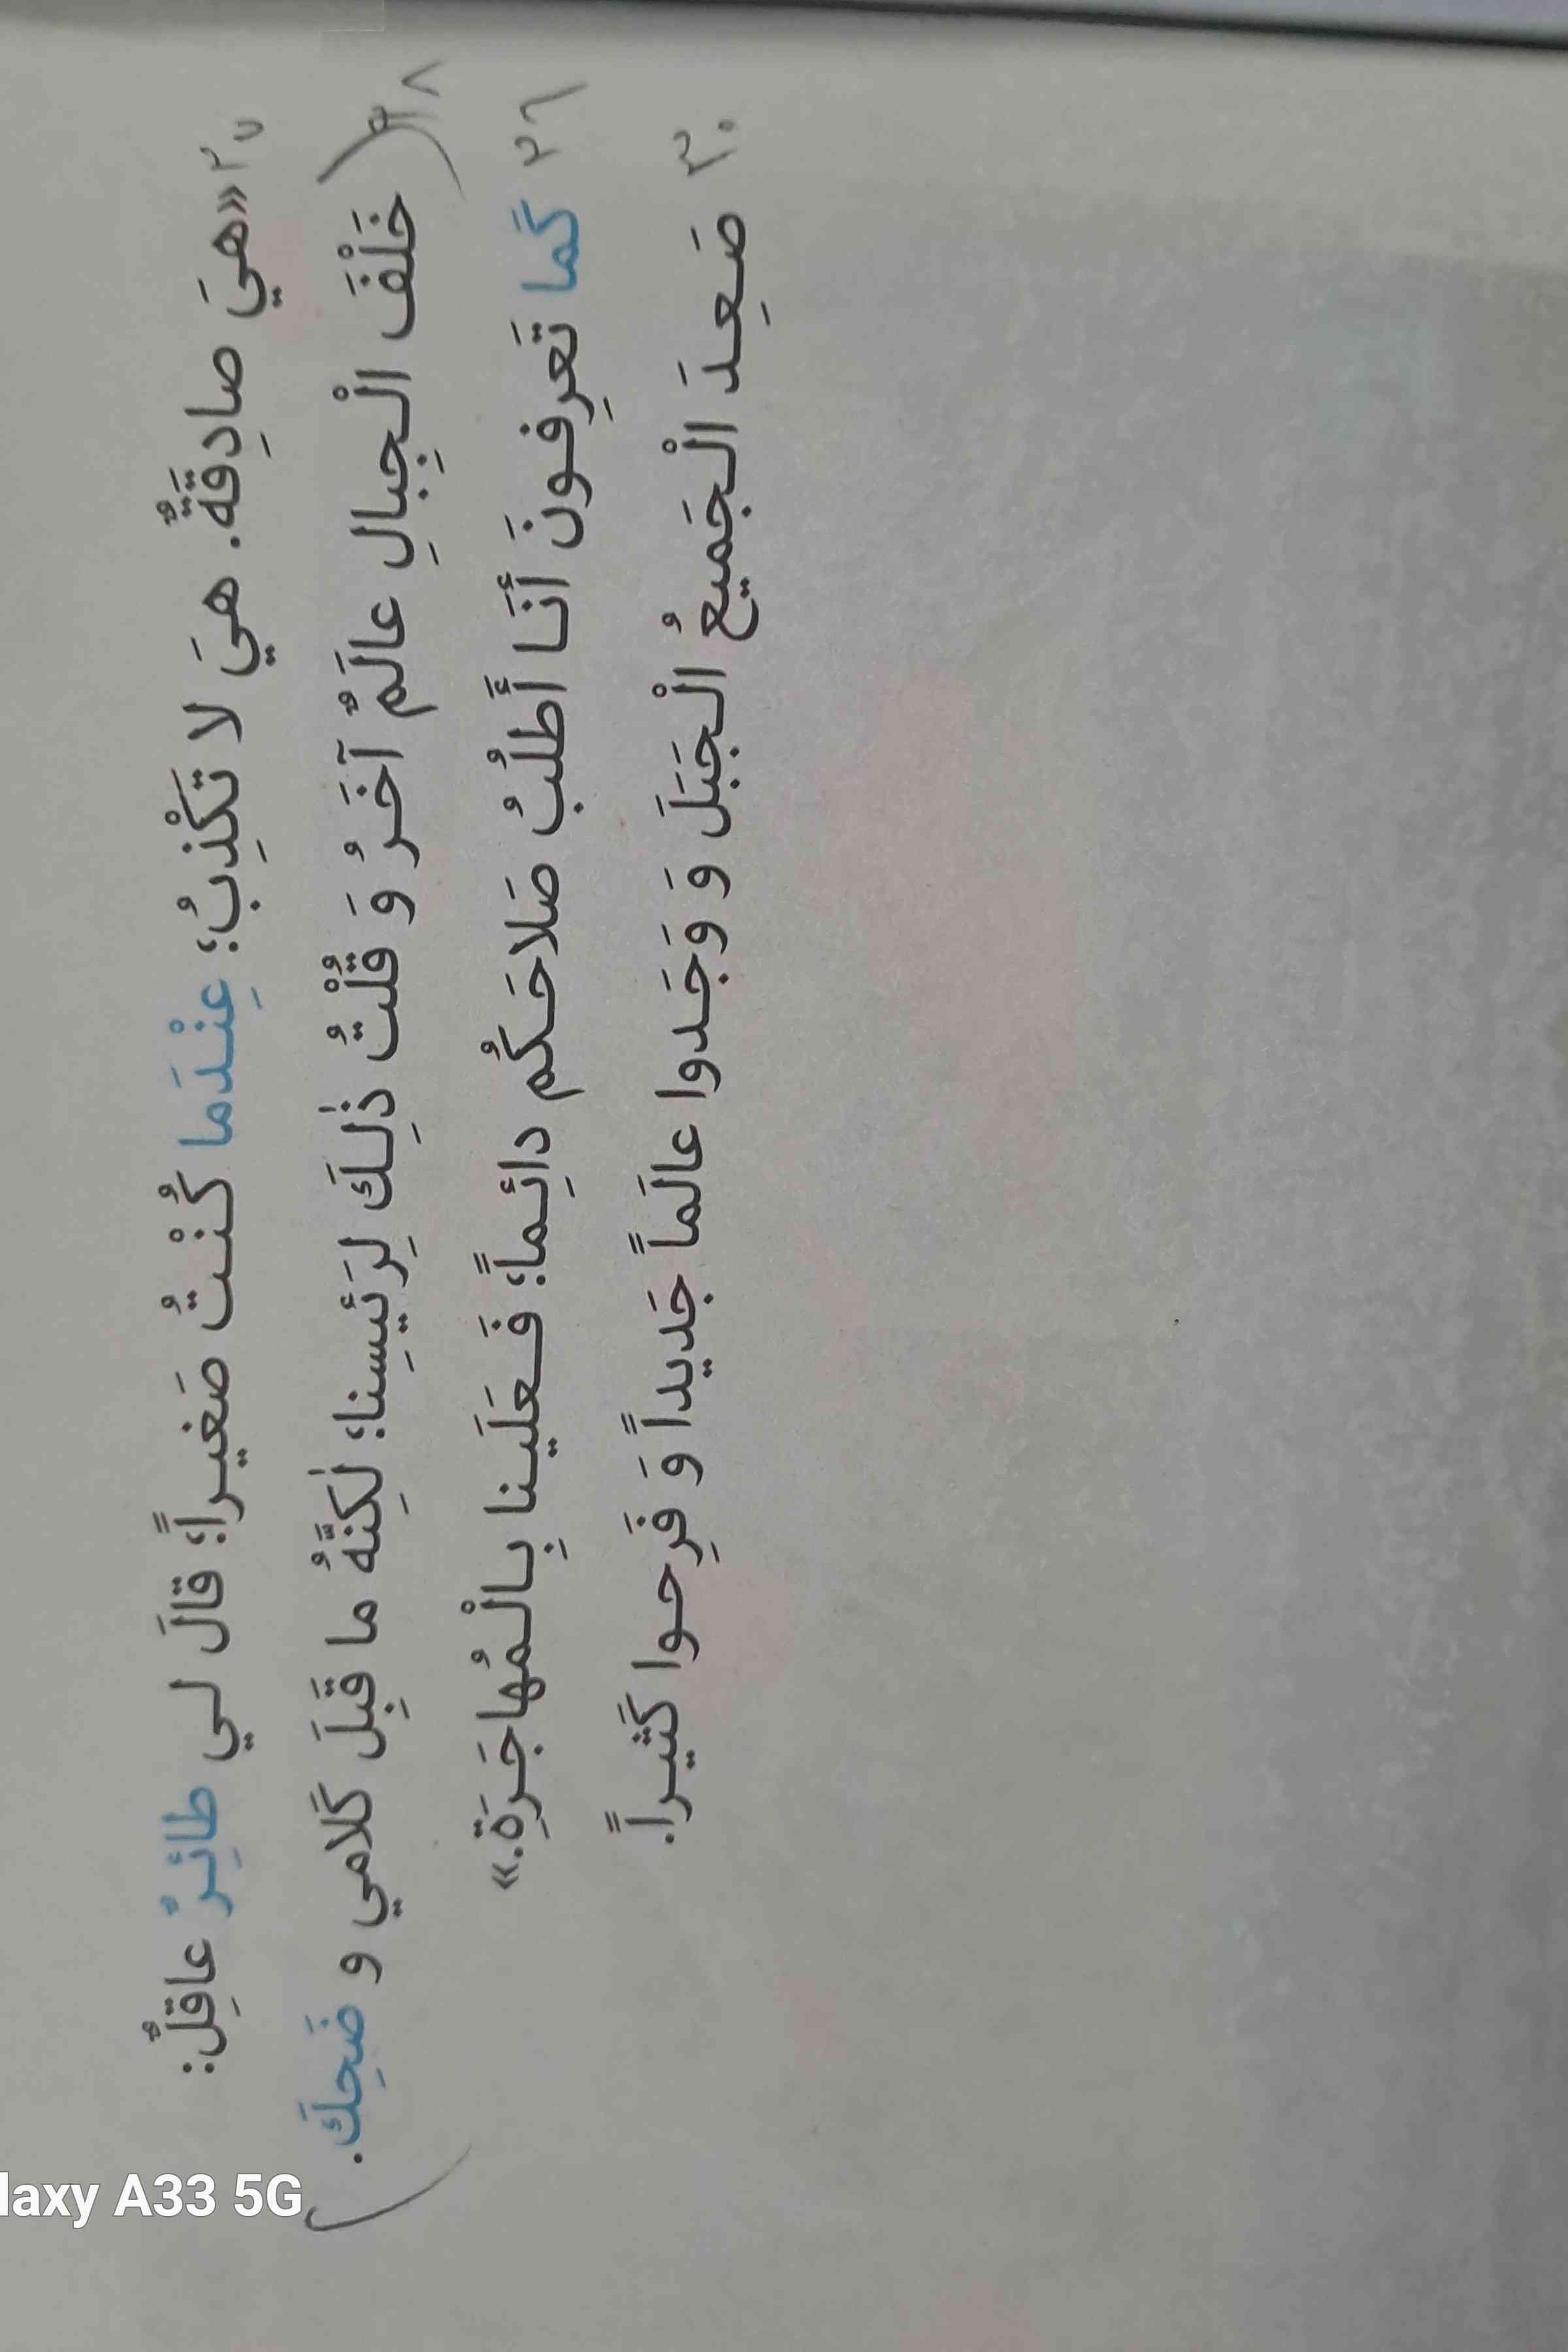 «هيَ صادِقَةٌ. هيَ لا تَكْذِبُ؛ عِنْدَما كُنْتُ صَغيراً؛ قالَ لي طائِرٌ عاقِلٌ: ٢٧
(خَلْفَ الْجِبالِ عالَمٌ آخَرُ وَ قُلْتُ ذٰلِكَ لِرَئيسِنا؛ لٰكِنَّهُ ما قَبِلَ كَلامي و ضَحِكَ.) ٢٨
كَما تَعرِفونَ أَنَا أَطلُبُ صَلاحَكُم دائِماً؛ فَعَلَينا بِالْمُهاجَرَةِ.» ٢٩
صَعِدَ الْجَميعُ الْجَبَلَ وَ وَجَدوا عالَماً جَديداً وَ فَرِحوا كَثيراً. ٣٠
laxy A33 5G